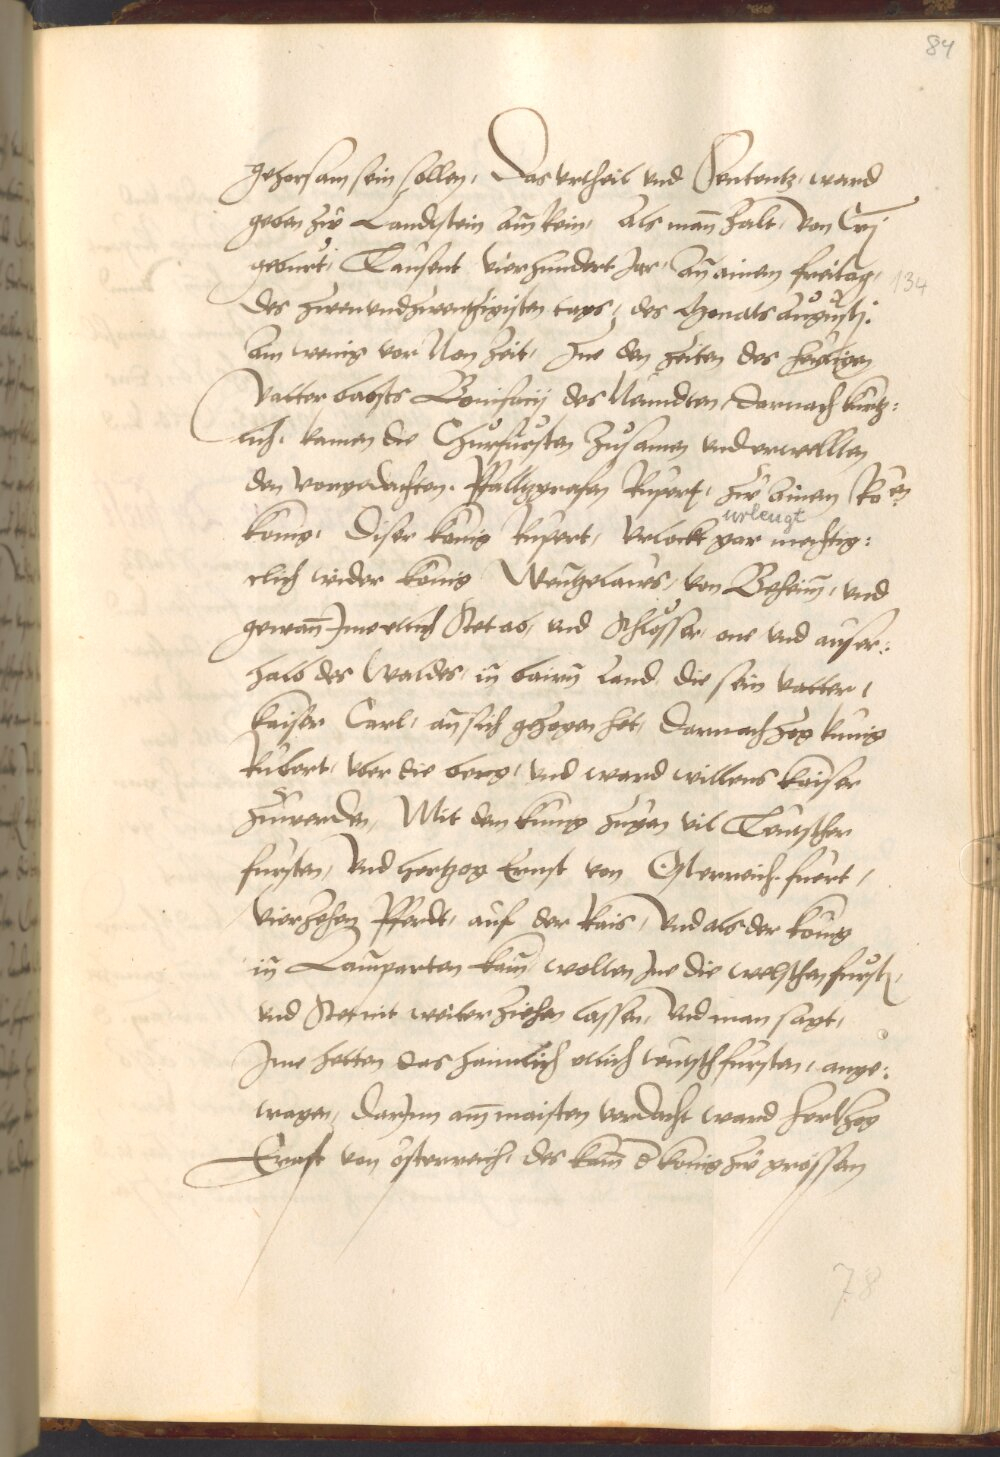 84
gehorsam sein sollen, Das vrtheil vnd Sententz, ward
geben zů Landstein am Rein, Als man zalt, von Cristi
geburt, Tausent vierhundert Jar, an ainem freitag,
134
des zwenvndzwentzigisten tags, des Monats Augusti.
Ain wenig vor Non zeit, Jnn den zeiten des heiligen
Vatter babsts Bonifacij des Neundten, Darnach kurtz:
lich, kamen die Churfürsten Zusamen vnd erwellten
den vorgedachten Pfaltzgrafen Rupert, zů ainem Rö:en
urleugt
konig, Diser konig Rupert, vrlockt gar mechtig:
clich wider konig Wentzelaus, von Beheim, vnd
gewan Jme etlich Stet ab, vnd Schlosser, one vnd auser:
halb des Waldes, in bairn land, die sein vatter,
kaiser Carl, an sich gezogen het, Darnach zog kunig
Rubert, vber die berg, vnd ward willens kaiser
zůwerden, Mit dem kunig zugen vil Teutscher
fursten, Vnd hertzog Ernst von Osterreich fuert,
vierzehen Pferdt, auf der Rais, Vnd als der konig
in Lamparten kam wolten Jne die welschen fursten,
vnd Stet nit weiter ziehen lassen, Vnd man sagt,
Jme hetten das haimlich etlich teutsch fursten, ange:
tragen, darJnn am maisten verdacht ward hertzog
Ernst von österreich, des kam d konig zů grossem
78